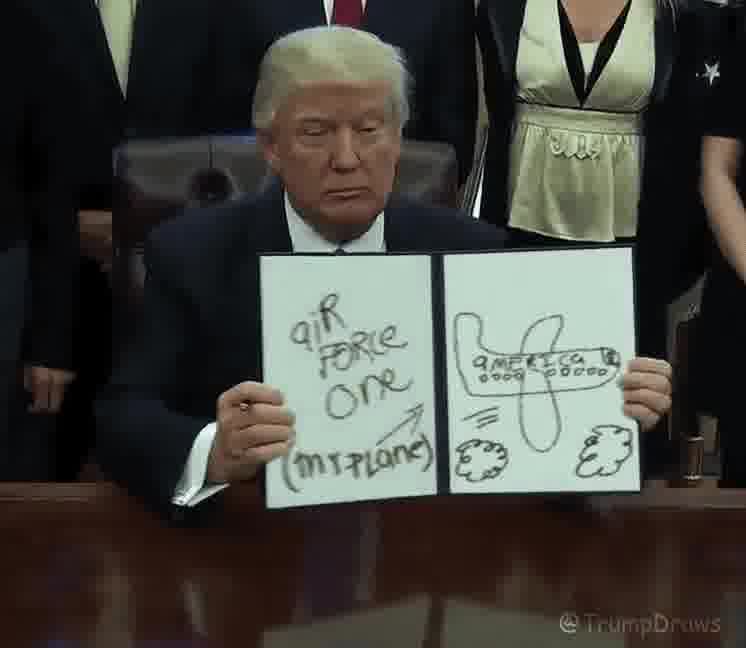 aiR
FORce
one
(my PLane)
aMERICa
@TrumpDraws